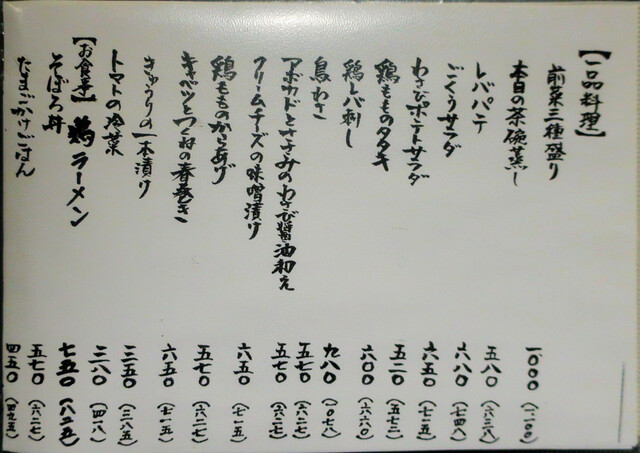 【一品料理】
前菜三種盛り 一〇〇〇(一一〇〇)
本日の茶碗蒸し 五八〇(六三八)
レバパテ 六八〇(七四八)
ごくうサラダ 六五〇(七一五)
わさびポテトサラダ 五二〇(五七二)
鶏もものタタキ 六〇〇(六六〇)
鶏レバ刺し 九八〇(一〇七八)
鳥わさ 五七〇(六二七)
アボカドとささみのわさび醤油和え 五七〇(六二七)
クリームチーズの味噌漬け 六五〇(七一五)
鶏もものからあげ 五七〇(六二七)
キャベツとつくねの春巻き 六五〇(七一五)
きゅうりの一本漬け 三五〇(三八五)
トマトの冷菜 三八〇(四一八)
【お食事】鶏ラーメン 七五〇(八二五)
そぼろ丼 五七〇(六二七)
たまごかけごはん 四五〇(四九五)